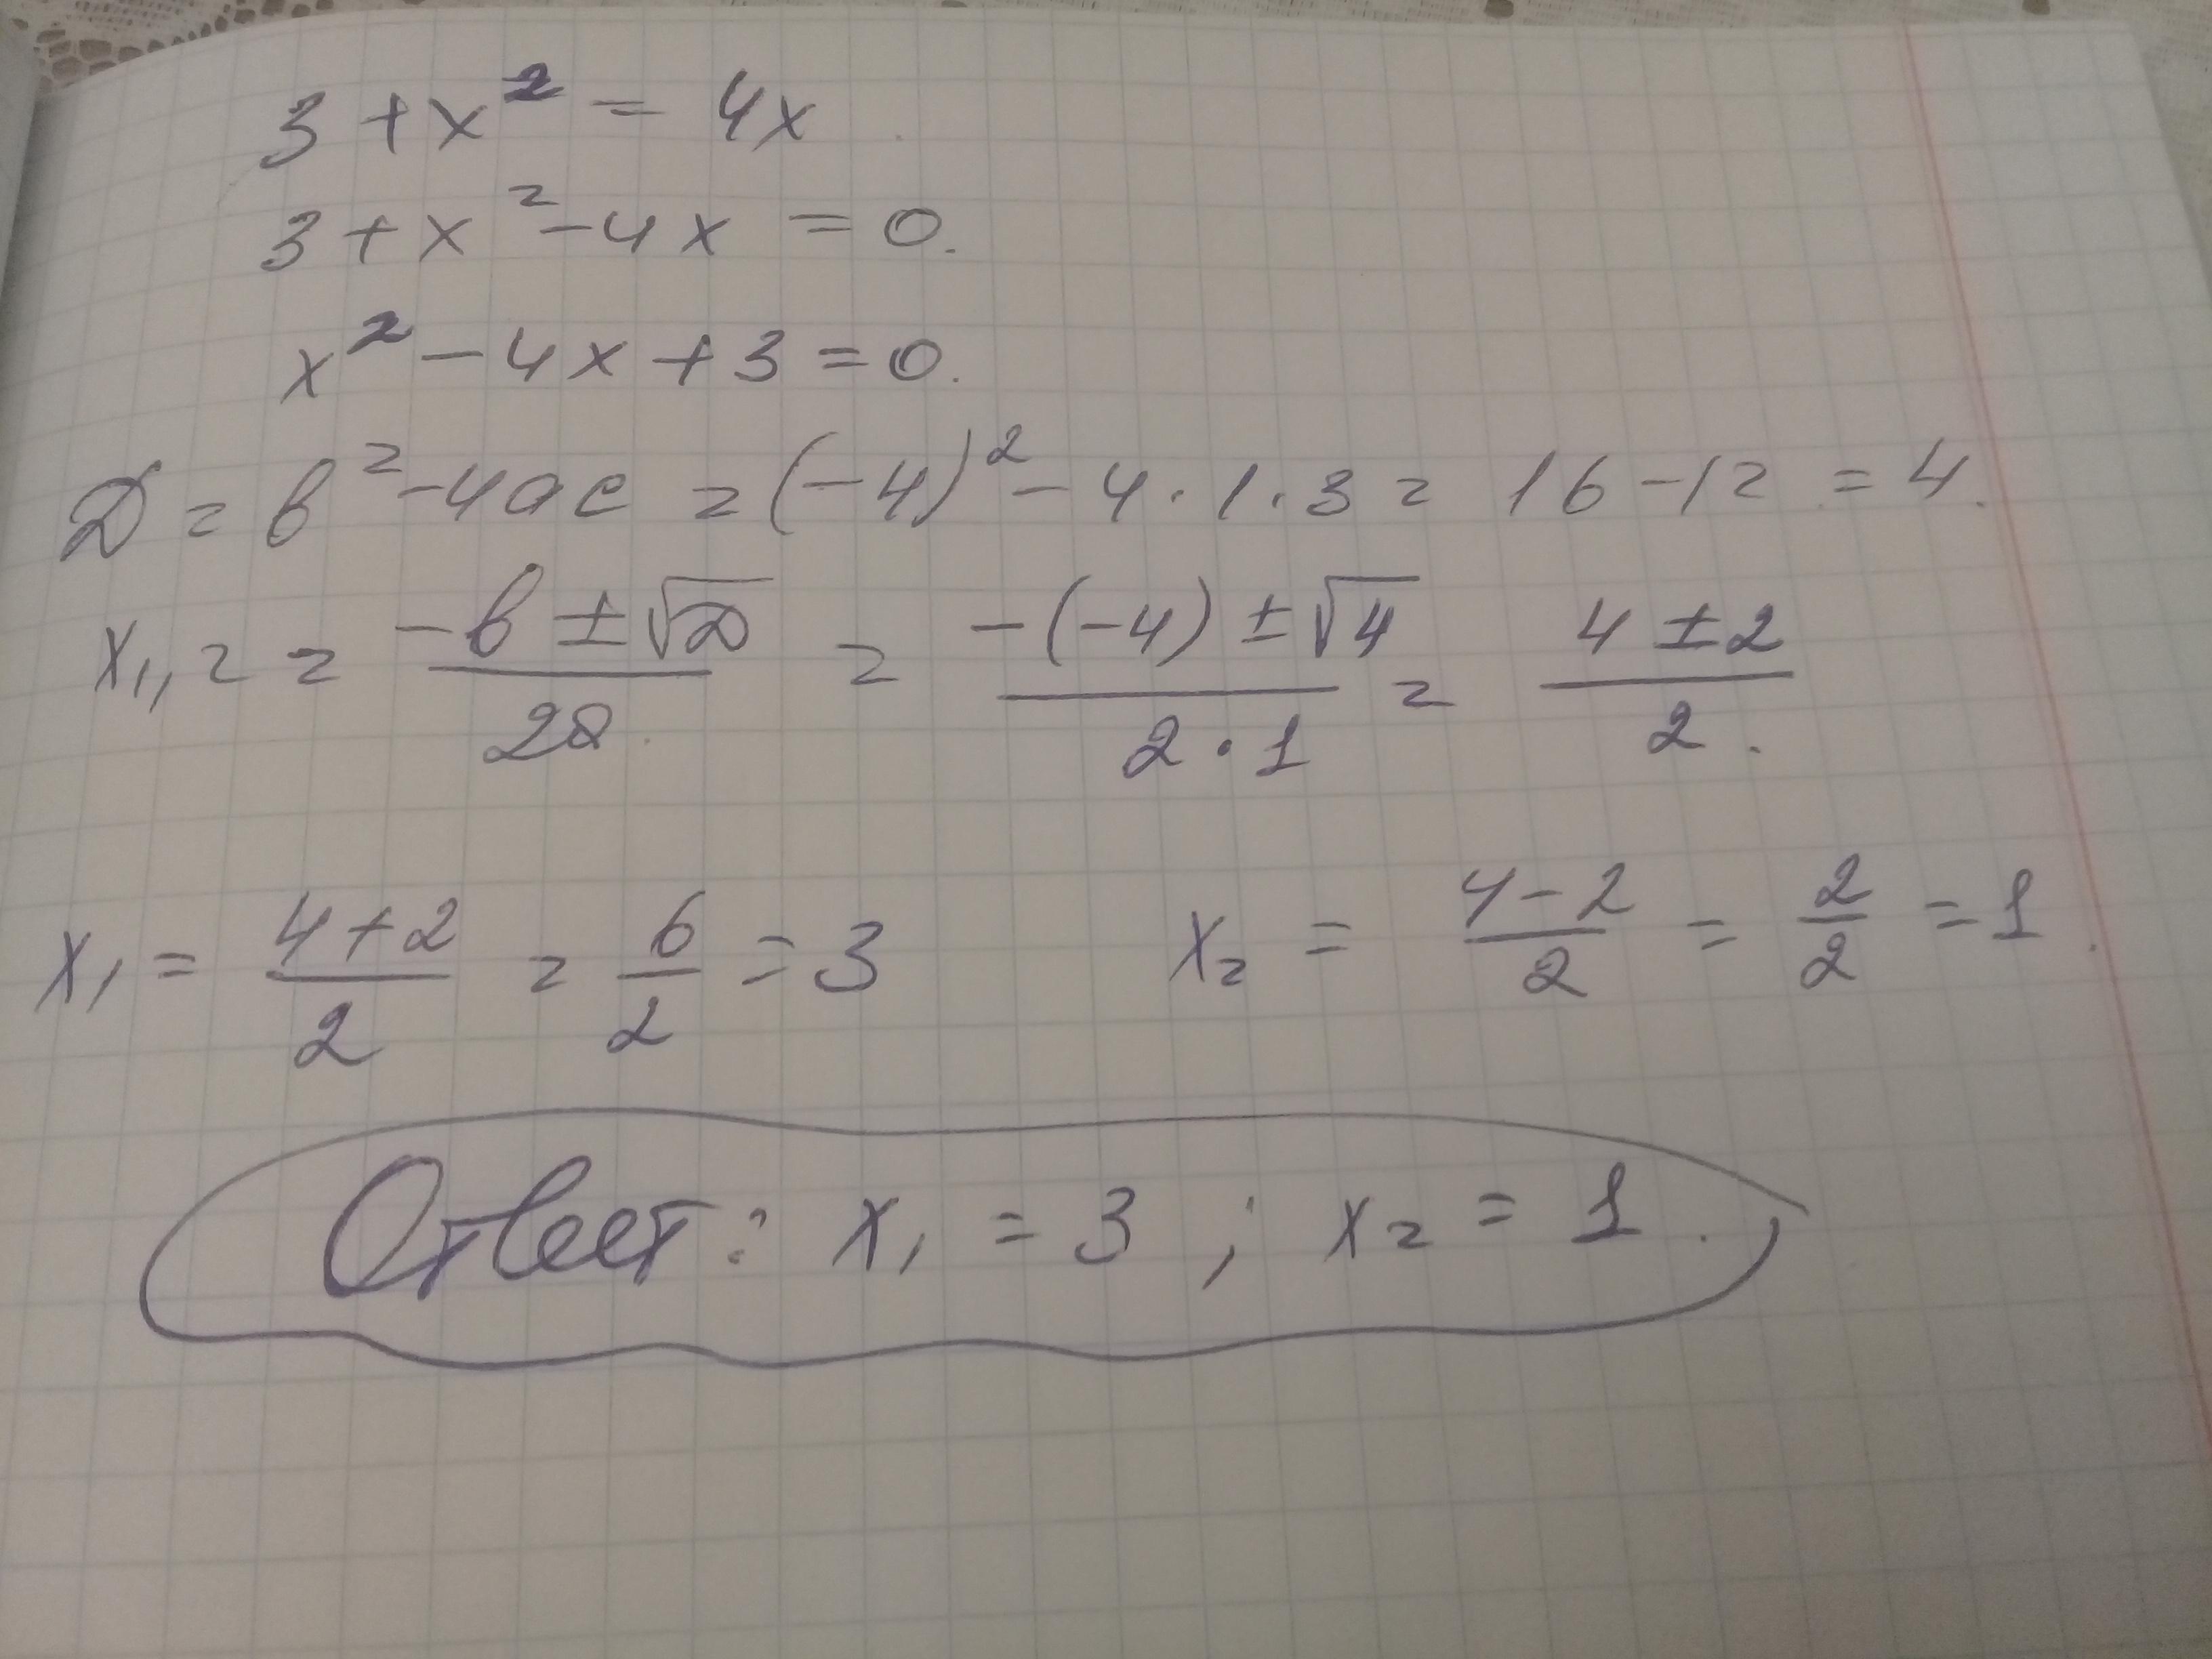 3 + x² = 4x
3 + x² - 4x = 0.
x² - 4x + 3 = 0.
D = b² - 4ac = (-4)² - 4 · 1 · 3 = 16 - 12 = 4.
x₁,₂ = (-b ± √D)/(2a) = (-(-4) ± √4)/(2 · 1) = (4 ± 2)/2.
x₁ = (4 + 2)/2 = 6/2 = 3 x₂ = (4 - 2)/2 = 2/2 = 1.
Ответ: x₁ = 3 ; x₂ = 1.